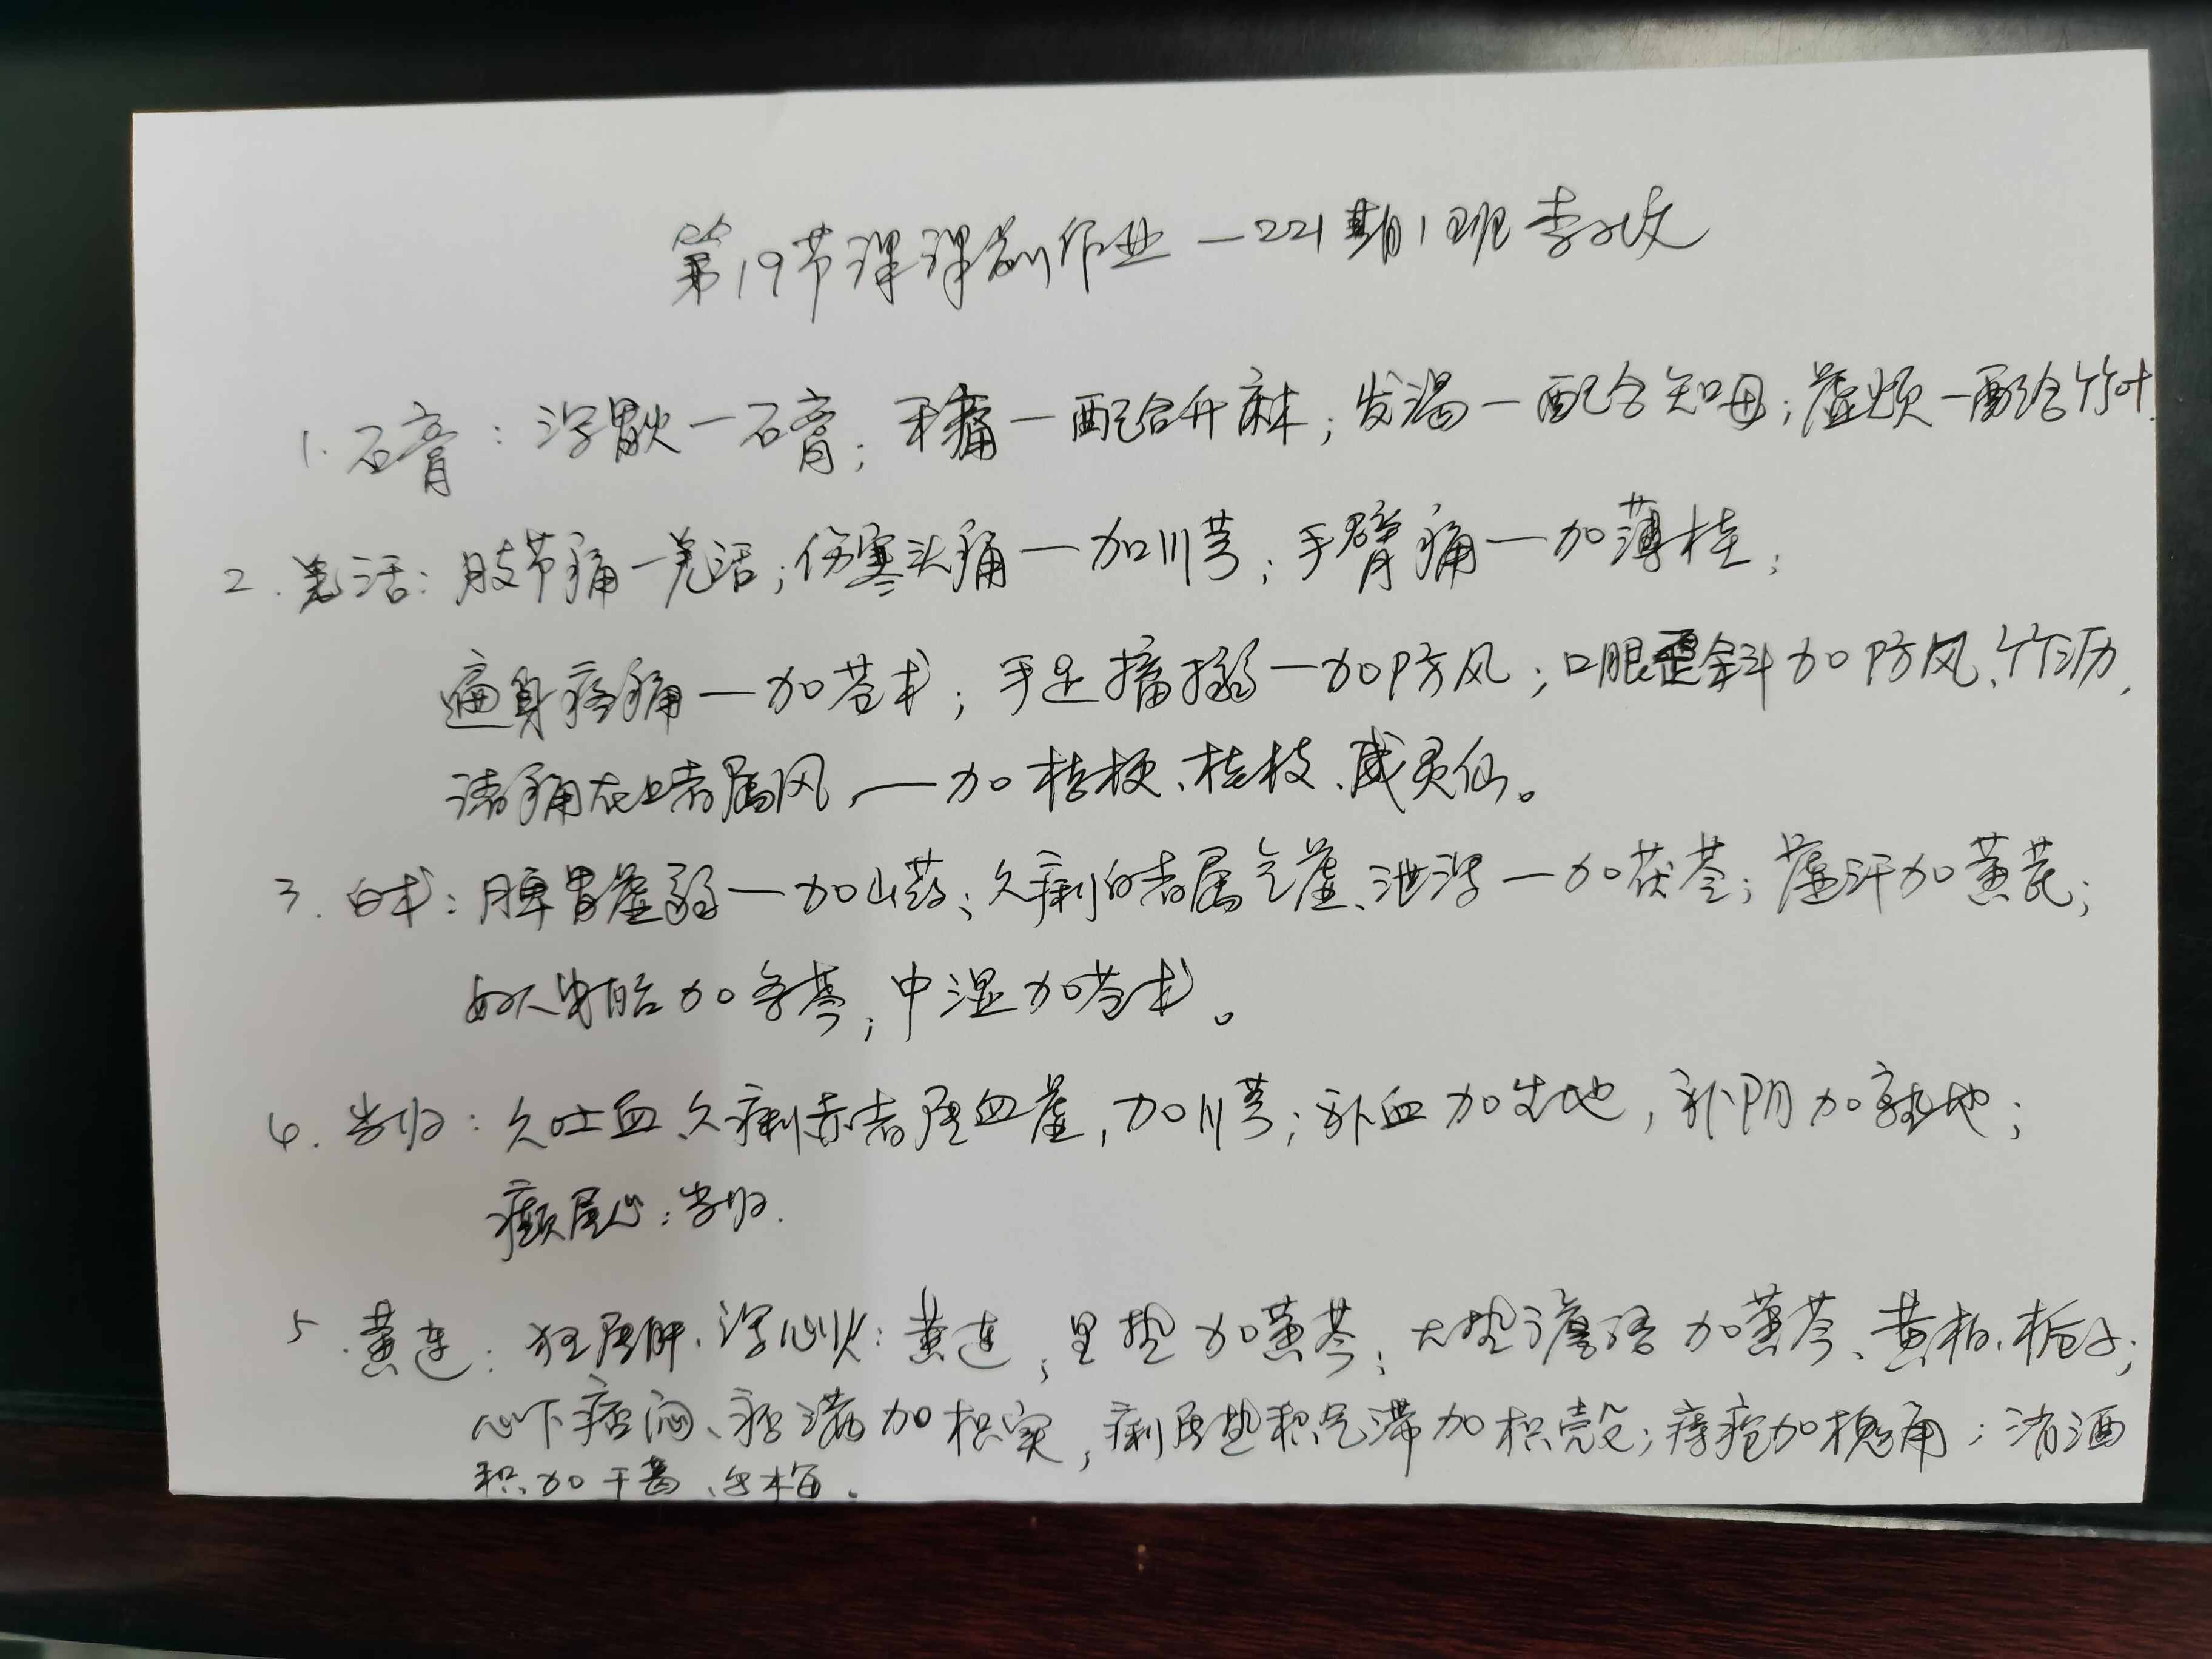 第19节课课前作业—221期1班李改
1.石膏：泻胃火—石膏；牙痛—配合升麻；发渴—配合知母；虚烦—配合竹叶.
2.羌活：肢节痛—羌活；伤寒头痛—加川芎；手臂痛—加薄桂；
遍身疼痛—加苍术；手足搐搦—加防风；口眼歪斜加防风、竹沥，
诸痛在上者属风，—加桔梗、桂枝、威灵仙。
3.白术：脾胃虚弱—加山药；久痢白者属气虚、泄泻—加茯苓；虚汗加黄芪；
妇人安胎加条芩；中湿加苍术。
4.当归：久吐血、久痢赤者属血虚，加川芎；补血加生地，补阴加熟地；
癫属心：当归.
5.黄连：狂属肝、泻心火：黄连；里热加黄芩；大热谵语加黄芩、黄柏、栀子；
心下痞闷、痞满加枳实，痢属热积气滞加枳壳；痔疮加槐角；消酒
积加干葛、乌梅.